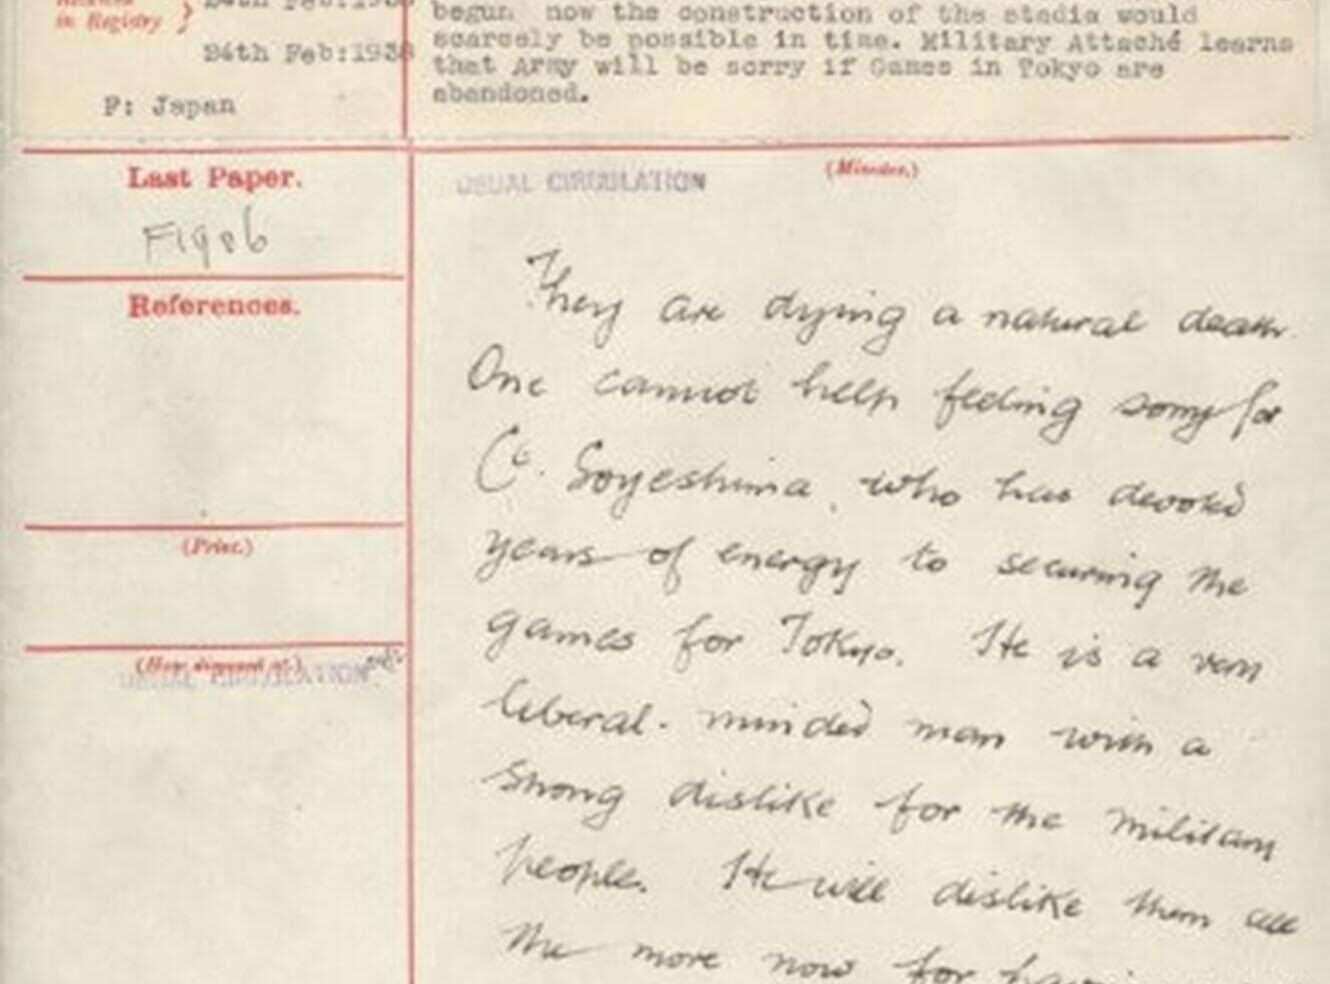 in Registry } 24th Feb:1938
24th Feb:1938
F: Japan
begun now the construction of the stadia would
scarcely be possible in time. Military Attaché learns
that Army will be sorry if Games in Tokyo are
abandoned.
Last Paper.
F1986
References.
(Print.)
(How disposed of.)
USUAL CIRCULATION
(Minutes.)
USUAL CIRCULATION
They are dying a natural death.
One cannot help feeling sorry for
Ct. Soyeshima, who has devoted
years of energy to securing the
games for Tokyo. He is a very
liberal-minded man with a
strong dislike for the military
people. He will dislike them all
the more now for